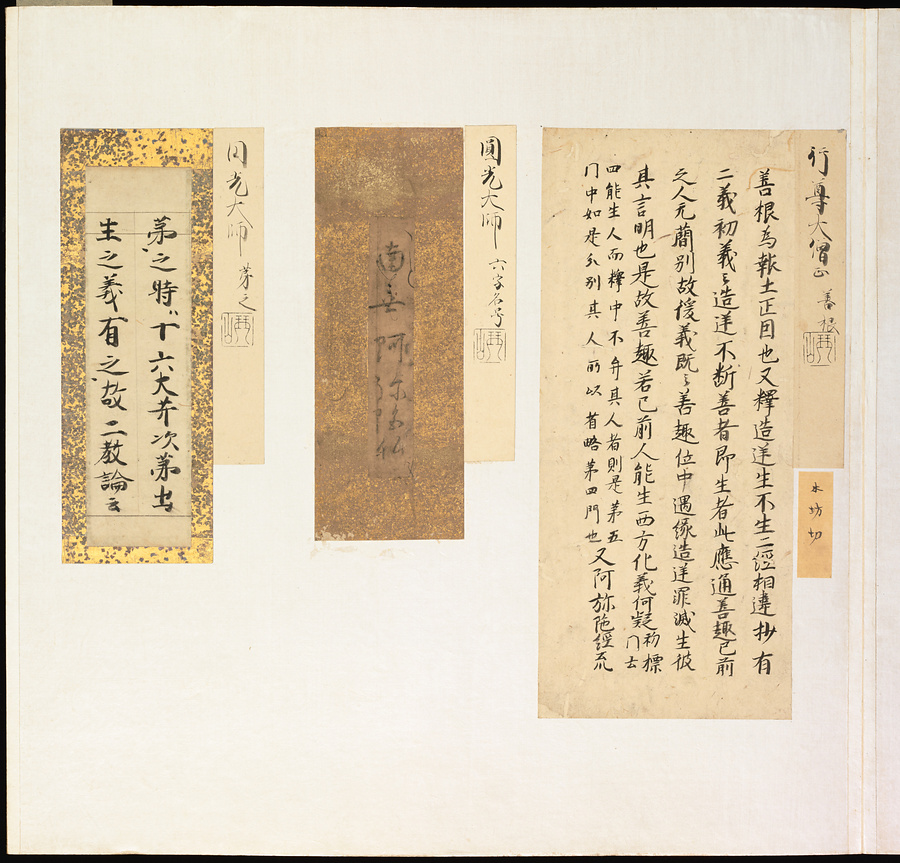 行尊大僧正 善根
善根為報土正因也又釋造逆生不生二經相違抄有
二義初義云造逆不断善者即生者此應通善趣已前
之人元蕳別故後義既云善趣位中遇縁造逆罪滅生彼
其言明也是故善趣若已前人能生西方化義何疑初標門云
四能生人而釋中不弁其人者則是第五
門中如是分別其人所以省略第四門也又阿弥陀經疏
圓光大師 六字名号
南無阿弥陀仏
円光大師 第之
第之時十六大菩次第出
生之義有之故二教論云